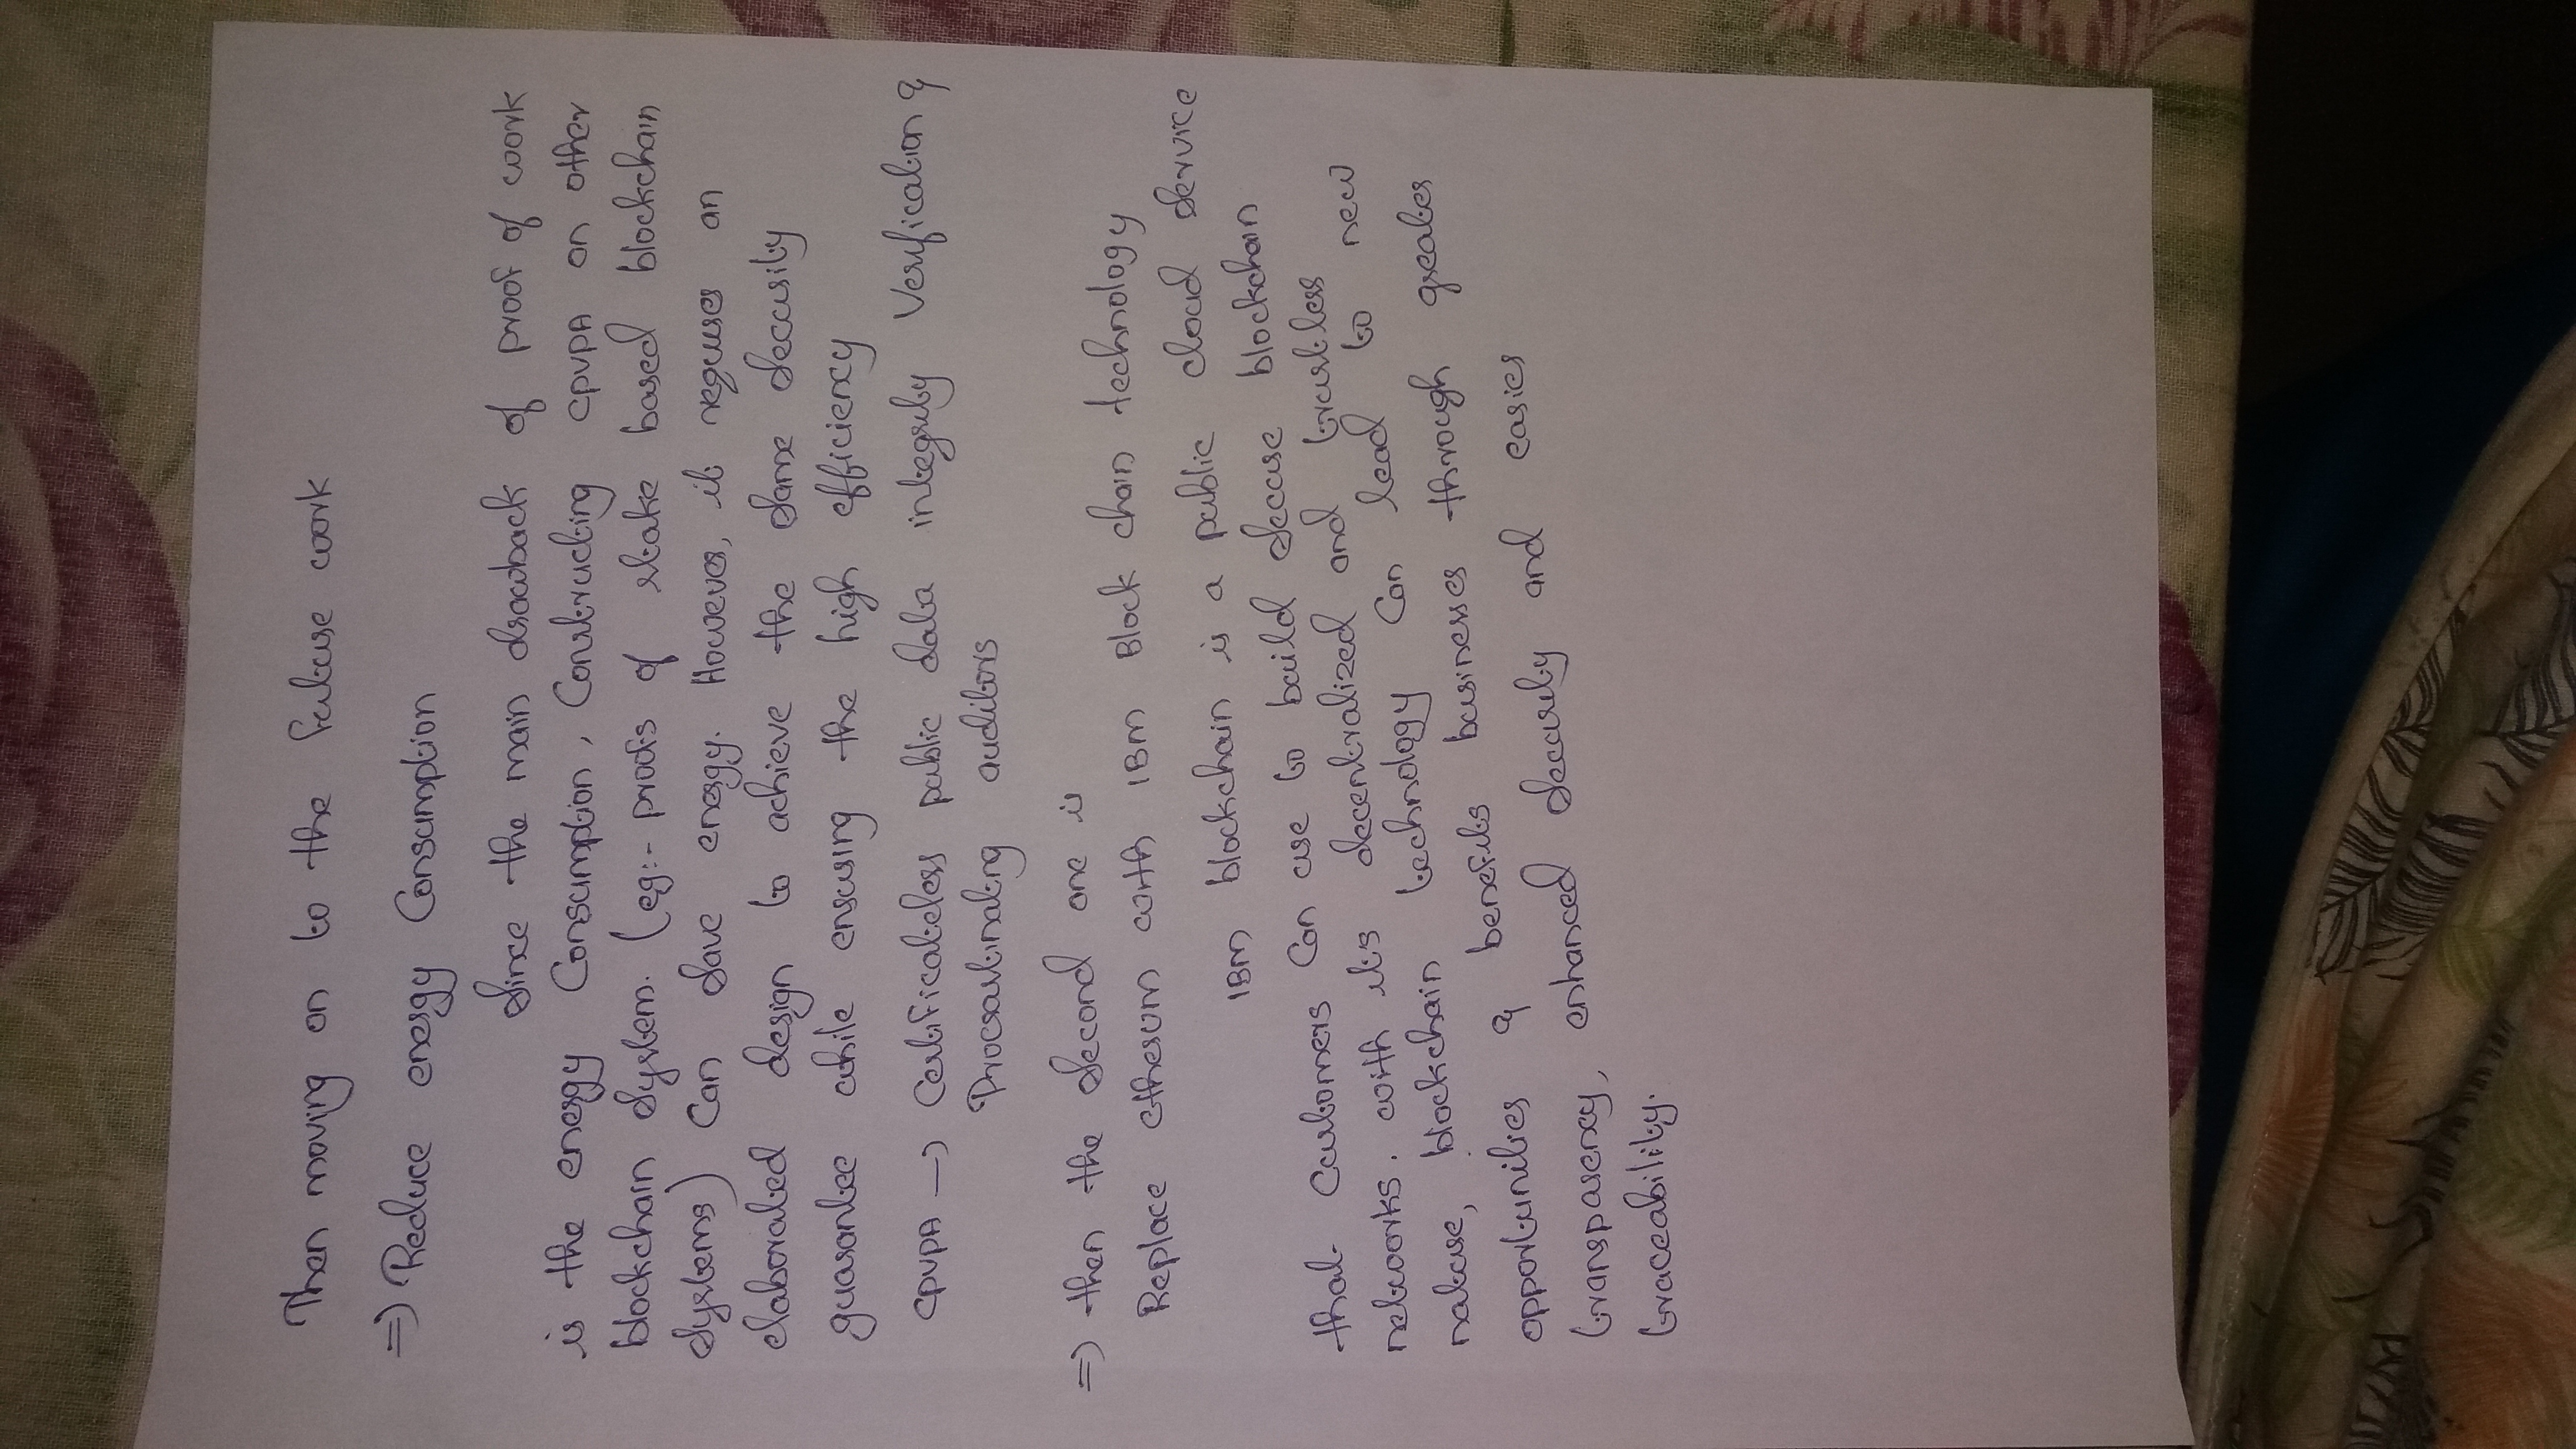 Then moving on to the future work
=> Reduce energy Consumption
Since the main drawback of proof of work
is the energy Consumption, Constructing CPVPA on other
blockchain System. (eg:- proofs of stake based blockchain
Systems) Can Save energy. However, it requires an
elaborated design to achieve the Same Security
guarantee while ensuring the high efficiency
CPVPA -> Certificateless public data integrity Verification &
Procrastinating auditors
=> then the Second one is
Replace etherum with IBM Block chain technology
IBM blockchain is a public cloud Service
that Customers Can use to build Secure blockchain
networks. with its decentralized and trustless
nature, blockchain technology Can lead to new
opportunities & benefits businesses through greater
transparency, enhanced Security and easier
traceability.